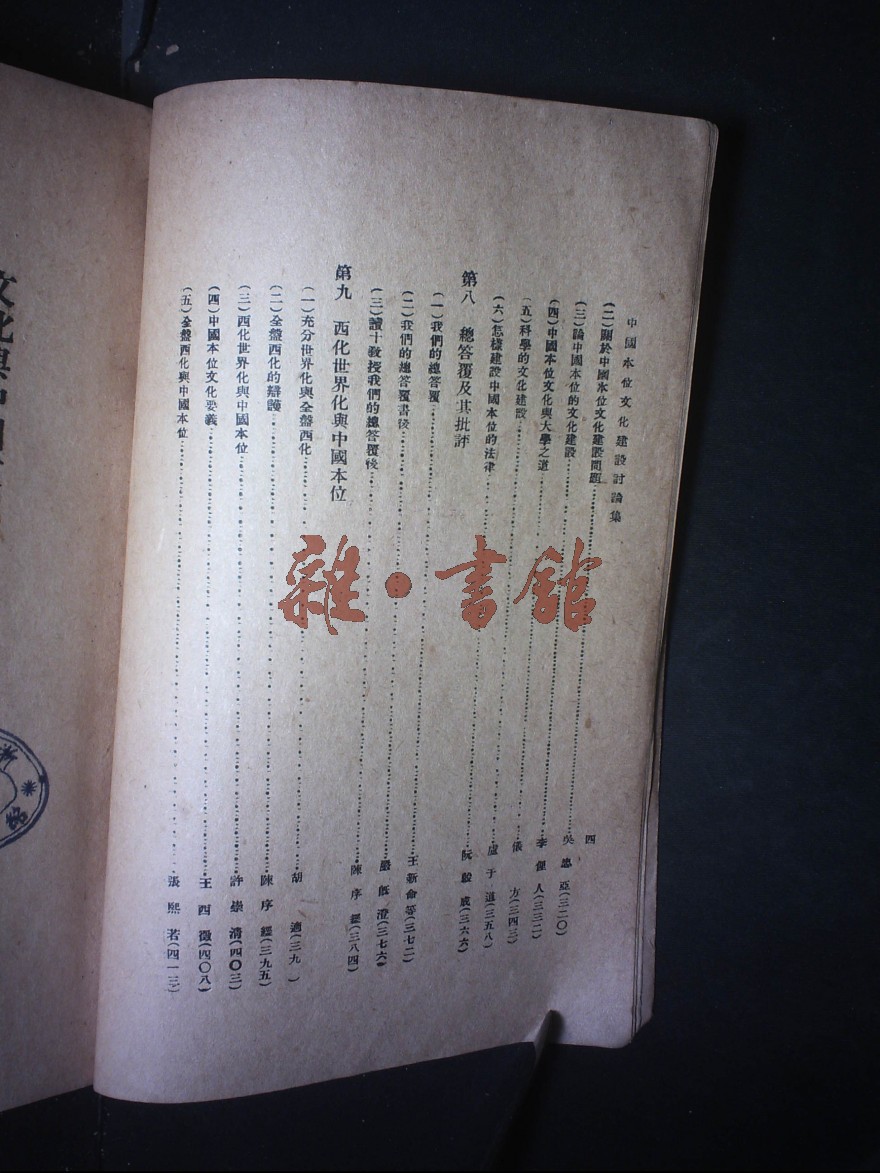 中國本位文化建設討論集
四
(二)關於中國本位文化建設問題……吳忠亞(三二〇)
(三)論中國本位的文化建設……李俚人(三三二)
(四)中國本位文化與大學之道……張 方(三四三)
(五)科學的文化建設……盧于道(三五八)
(六)怎樣建設中國本位的法律……阮毅成(三六六)
第八 總答覆及其批評
(一)我們的總答覆……王新命等(三七二)
(二)我們的總答覆書後……嚴旣澄(三七六)
(三)讀十教授我們的總答覆後……陳序經(三八四)
第九 西化世界化與中國本位
(一)充分世界化與全盤西化……胡 適(三九 )
(二)全盤西化的辯護……陳序經(三九五)
(三)西化世界化與中國本位……許崇清(四〇三)
(四)中國本位文化要義……王西徵(四〇八)
(五)全盤西化與中國本位……張熙若(四一三)
雜·書館